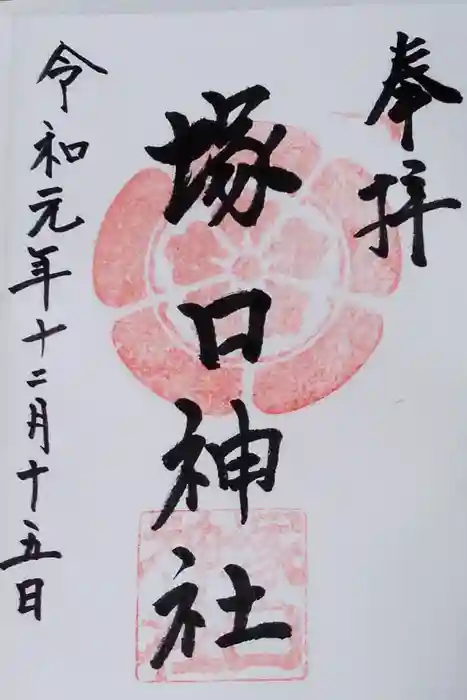 奉拝
塚口神社
令和元年十二月十五日